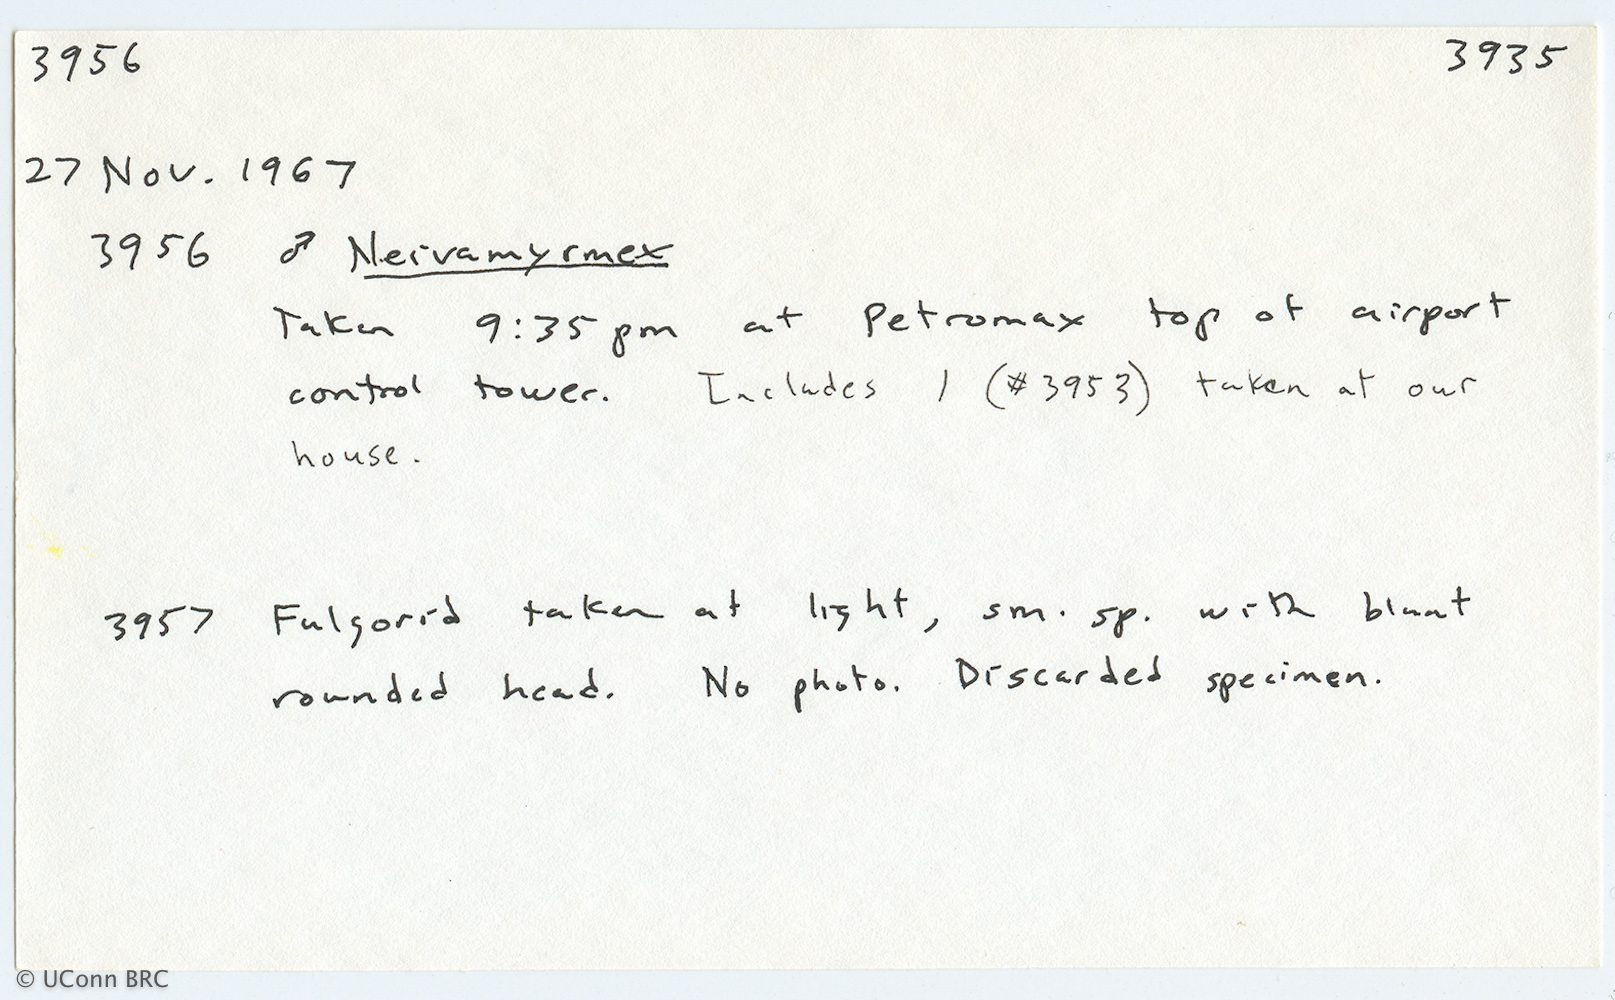 3956 3935
27 Nov. 1967
3956 ♂ Neivamyrmex
Taken 9:35 pm at Petromax top of airport
control tower. Includes 1 (#3953) taken at our
house.
3957 Fulgorid taken at light, sm. sp. with blunt
rounded head. No photo. Discarded specimen.
© UConn BRC